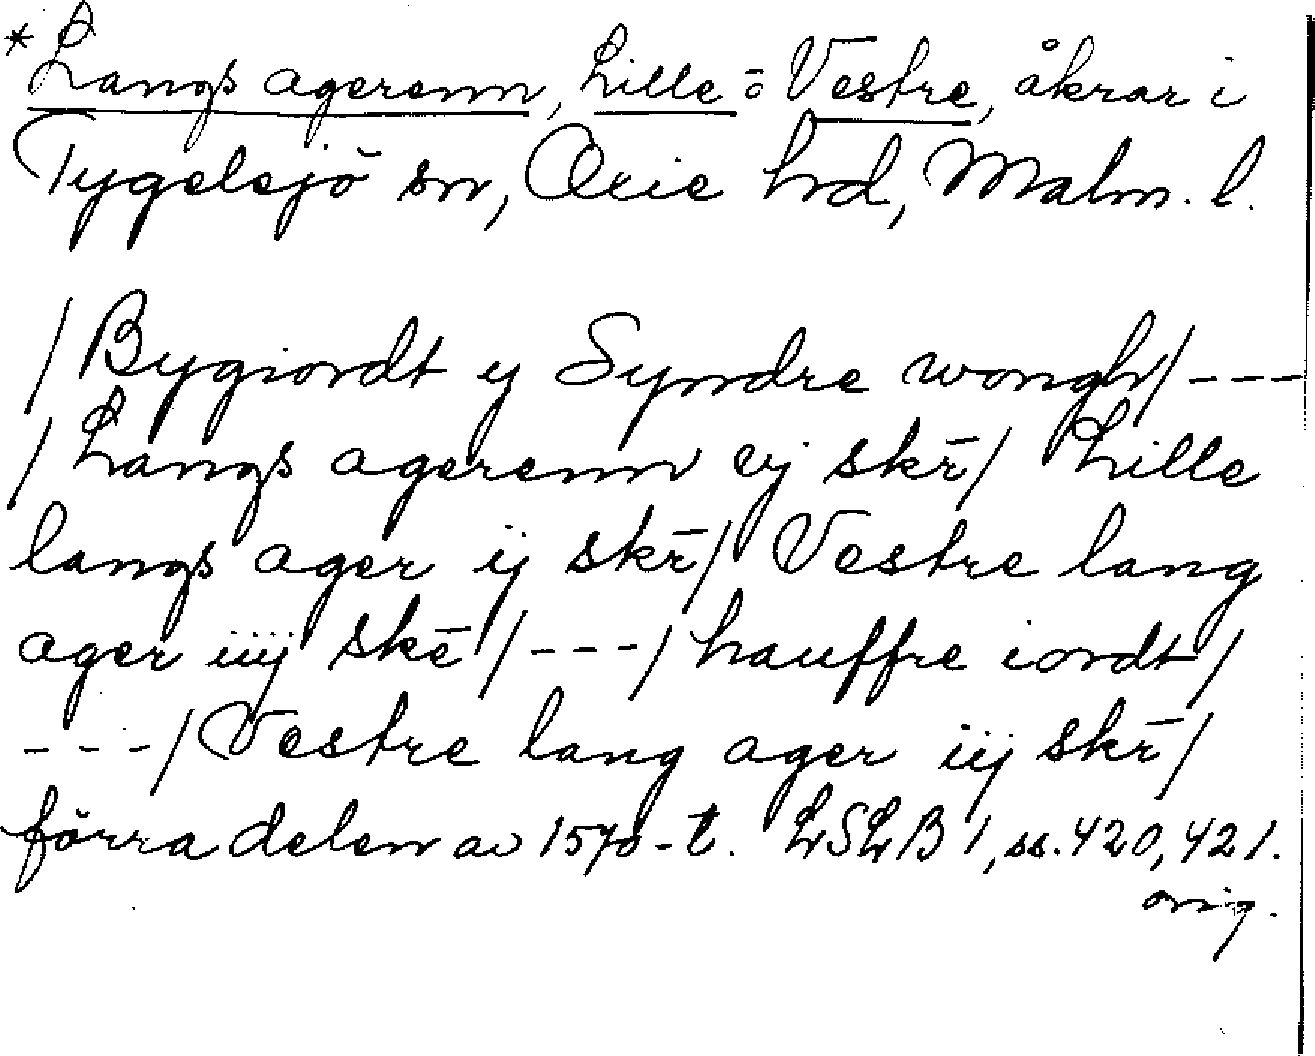 * Langs agerenn, Lille= o Vestre, åkrar i
Tygelsjö sn, Oxie hrd, Malm. l.
/ Bygiordt y Syndre wongh / ---
/ Langs agerenn vj skr̄ / Lille
langs ager ij skr̄ / Vestre lang
ager iiij skē / --- / hauffre iordt /
--- / Vestre lang ager iij skr̄ /
förra delen av 1570-t. LSLB 1, ss. 420, 421.
orig.